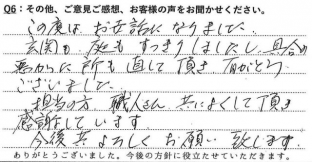 Q6：その他、ご意見ご感想、お客様の声をお聞かせください。
この度は、お世話になりました。
玄関も庭もすっきりしましたし、具合の
悪かった所も直して頂き有がとう
ございました。
担当の方、職人さん共によくして頂き
感謝しています
今後共よろしくお願い致します。
ありがとうございました。今後の方針に役立たせていただきます。